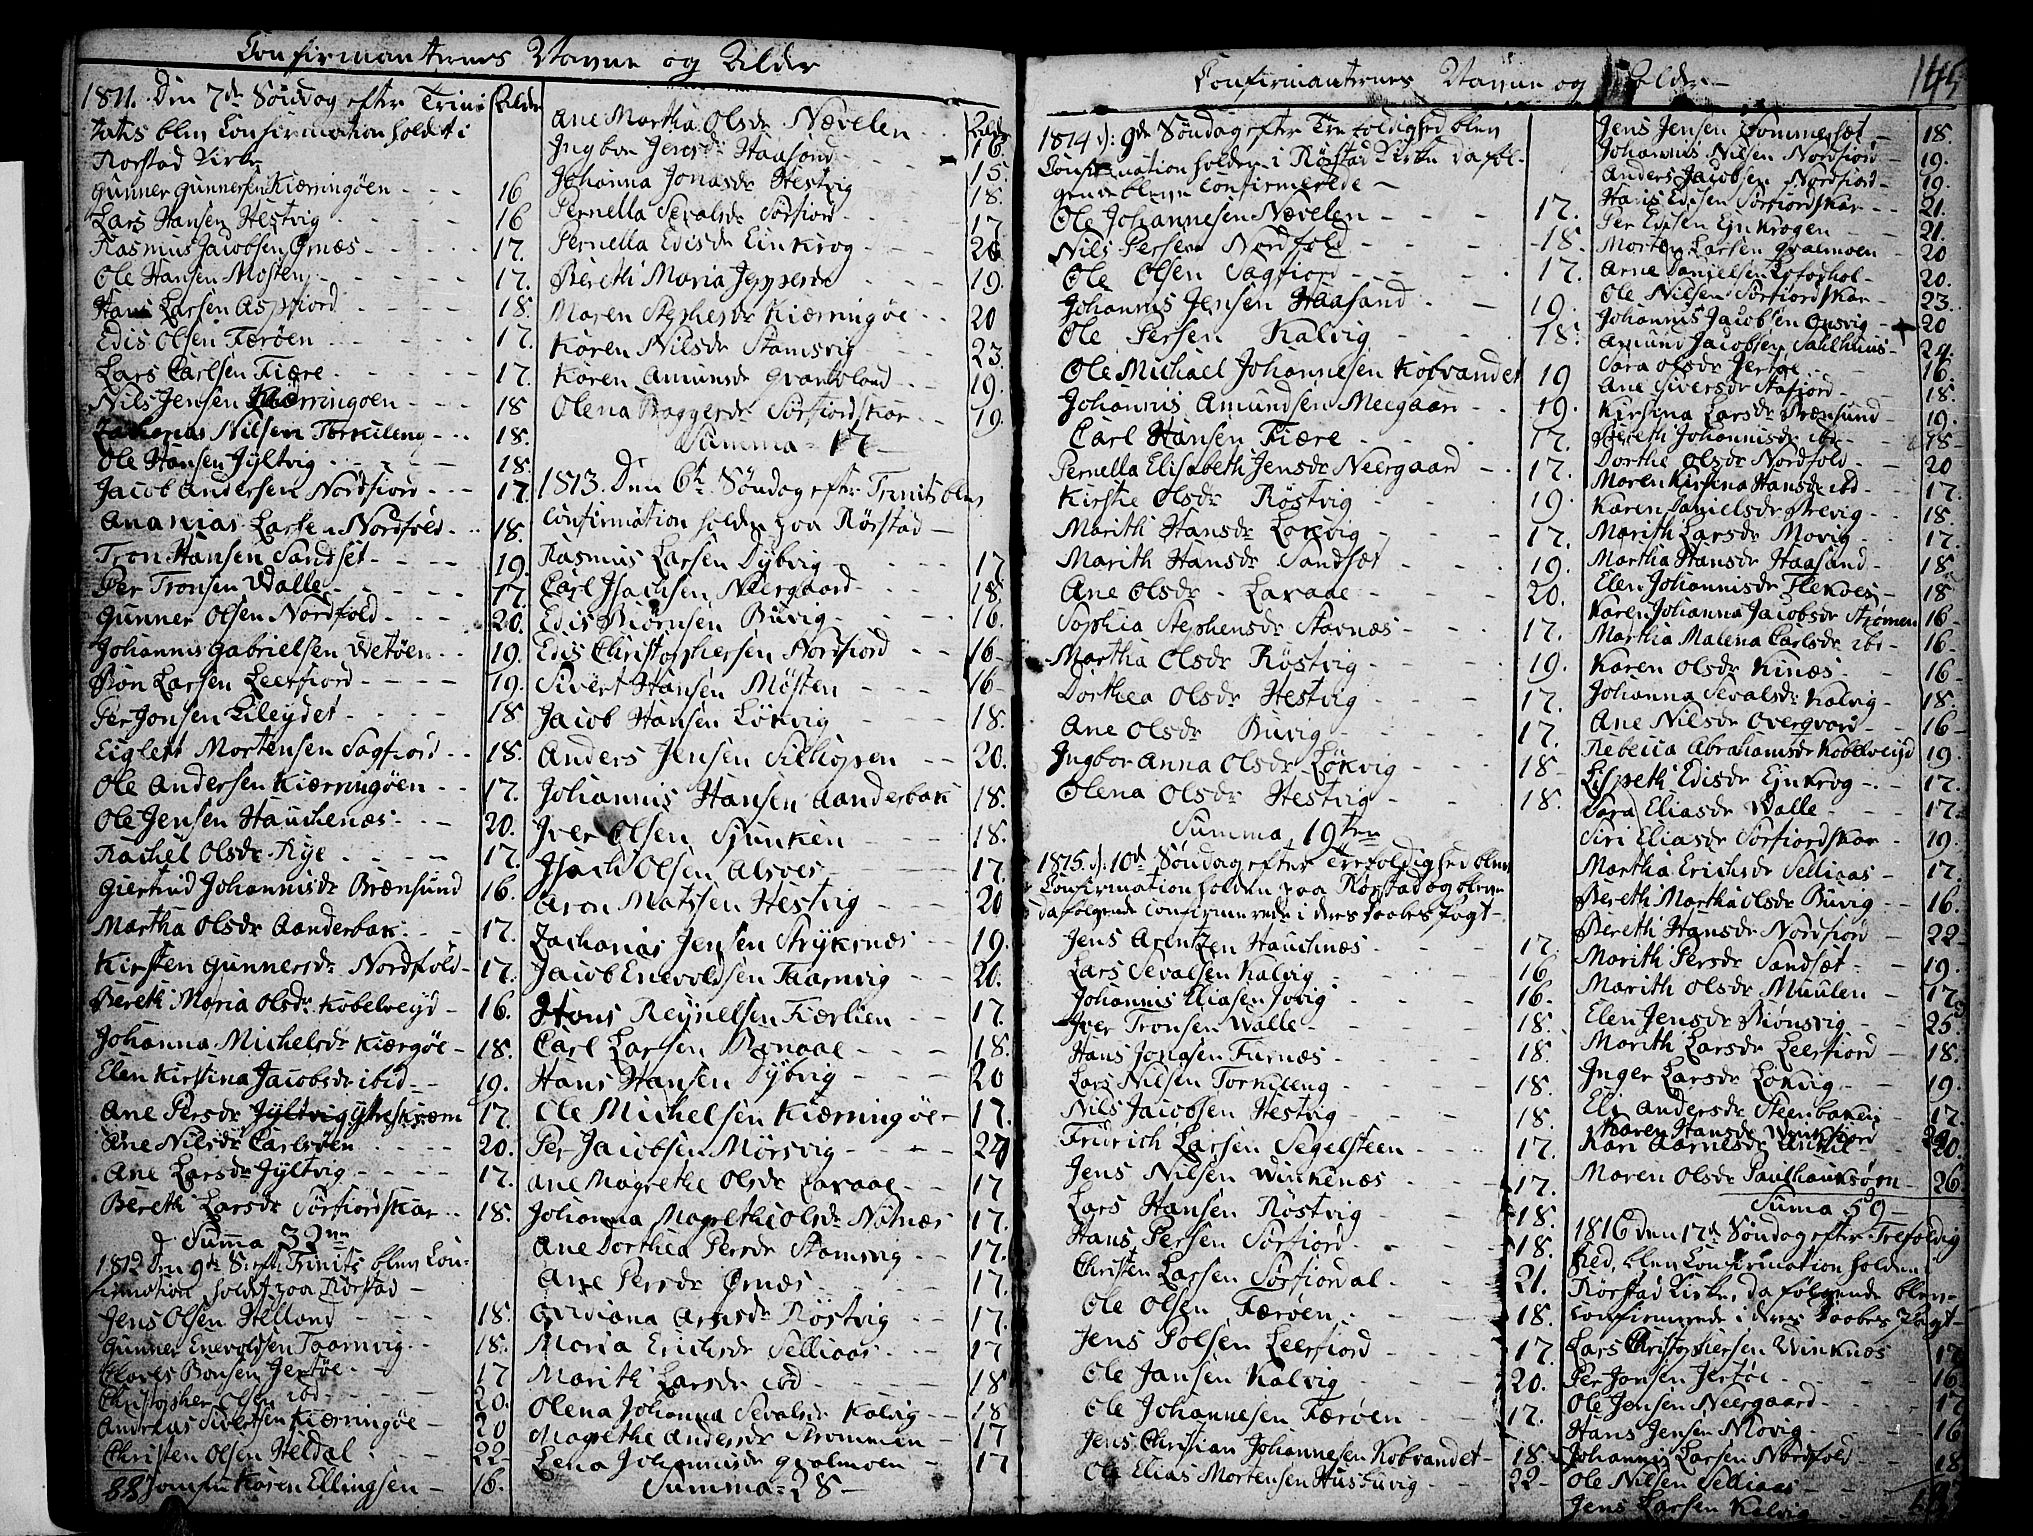 Confirmanternes Navne og Alder
1811. Den 7de Søndag efter Trini
tatis blev Confirmation holdet i
Rørstad Kirke
Alder
Gunner Gunnersen Kierringøen - - - 16
Lars Hansen Hestvig - - - 16
Rasmus Jacobsen Ørnæs - - - 17.
Ole Hansen Møsten - - - 17.
Hans Larsen Aspfiord - - - 18.
Edis Olsen Færøen - - - 17.
Lars Carlsen Fiære - - - 17.
Nils Jensen Kiærringøen - - - 18
Zacharias Nilsen Torkileng - - - 18.
Ole Hansen Jyltvig - - - 18.
Jacob Andersen Nordfiord - - - 17.
Ananias Larsen Nordfold - - - 18.
Tron Hansen Sandset - - - 19.
Per Tronsen Walle - - - 17.
Gunner Olsen Nordfold - - - 20.
Johannis Gabrielsen Wetøen - - 19.
Bon Larsen Leerfiord - - - 19.
Per Jonsen Lileydet - - - 18
Eiglett Mortensen Sagfiord - - 18.
Ole Andersen Kiærringøen - - 17.
Ole Jensen Hauchenæs - - 20.
Rachel Olsdr Rye - - - 17.
Giertrud Johannisdr Brænsund 16.
Martha Olsdr Aanderbak - - 17.
Kirsten Gunnersdr Nordfold - 17.
Bereth Maria Olsdr Kobelveyd - 16.
Johanna Michelsdr Kiærgøe - 18.
Elen Kirstina Jacobsdr ibid - - 19.
Ane Persdr Jyltvig 17.
Ane Nilsdr Carlsøen - - - 20.
Ane Larsdr Jyltvig - - - 17.
Bereth Larsdr Sørfiordskar - - 18.
Summa 32
1812 Den 9de S: eft. Trinits blev Con-
firmation holdt paa Rørstad -
Jens Olsen Helland - - - 18.
Gunner Enevoldsen Taarnvig - - 18.
Bonsen Jertøe - - 17
Christopher Olsen ibd - - - 20.
Andreas Sivertsen Kiærringøe - 20
Christen Olsen Heldal - - - 22-
Jomfru Karen Ellingsen - 16.
Ane Martha Olsdr Nævelen - - 16.
Ingbor Jensdr Haasand - - 15.
Johanna Jonasdr Hestvig 18.
Pernella Sevalsdr Sørfiord - - 17
Pernella Edisdr Einkrog - - 20
Bereth Maria Jeppesdr - - - 19.
Maren Stephesdr Kiærringøe - - 20
Karen Nilsdr Stamsvig - - - 23.
Karen Amundsdr Qvantoland - - 19.
Olena Baggesdr Sørfiordskar - 19.
Summa - 17
1813. Den 6te Søndag efter Trinits blev
Confirmation holden paa Rørstad -
Rasmus Larsen Dybvig - - - 17
Carl Isachsen Neergaard - - - 18
Edis Biørnsen Buvig - - - 16.
Edis Christophersen Nordfiord - - 16
Sivert Hansen Møsten - - - 16
Jacob Hansen Løkvig - - - 18.
Anders Jensen Silkopen - - 20.
Johannis Hansen Aanderbak 18.
Iver Olsen Siunken - - - 18.
Isach Olsen Alsoes - - - 17.
Aron Matsen Hestvig - - - 20
Zacharias Jensen Strøksnæs - - 19.
Jacob Enevoldsen Taarnvig - - 20.
Hans Reynelsen Fiærlien - - 17.
Carl Larsen Bonaae - - - 18.
Hans Hansen Dybvig - - - 20
Ole Michelsen Kiærringøe - 17.
Per Jacobsen Mørsvig - - - 24
Ane Magrethe Olsdr Laxaae - - 17
Johanna Magrethe Olsdr Nøtnæs 17.
Ane Dorthea Persdr Stamsvig - - 17.
Ane Persdr Ørnæs - - - 17.
Andriana Arnsdr Røstvig - - 17.
Maria Erichsdr Selliaas - - 17
Marith Larsdr ibd - - - 18
Olena Johanna Sevalsdr Kalvig - - 18
Magrethe Andersdr Strømmen - 17
Lena Johannisdr Qvalmoen - 17
Summa - 28 -
Confirmanternes Navne og Alder -
145
1814 d: 9de Søndag efter Trefoldighed blev
Confirmation holden i Rørstad Kirke da føl-
gende bleve Confirmerede -
Ole Johannesen Nævelen - - - 17.
Nils Persen Nordfold - - - 18.
Ole Olsen Sagfiord - - - 17.
Johannis Jensen Haasand - - 19.
Ole Persen Kalvig - - - 18.
Ole Michael Johannesen Kobvandet 19
Johannis Amundsen Neegaar - - 19.
Carl Hansen Fiære - - - 17.
Pernella Elisabeth Jensdr Neergaard - - 17.
Kirstie Olsdr Røstvig - - - 19.
Marith Hansdr Løkvig - - - 17.
Marith Hansdr Sandset - - - 19.
Ane Olsdr - Laxaae - - - 20.
Sophia Stephensdr Stavnæs - - - 17.
Martha Olsdr Røstvig - - - 19.
Dorthea Olsdr Hestvig - - - 17.
Ane Olsdr Buvig - - - 17.
Ingbor Anna Olsdr Løkvig - - - 18
Olena Olsdr Hestvig - - 18.
Summa 19ten
1815. d: 10de Søndag efter Trefoldighed blev
Confirmation holden paa Rørstad og bleve
da følgende Confirmerede i deres Daabes Pagt -
Jens Arentzen Hauchnæs - - - 17.
Lars Sevalsen Kalvig - - - 16
Johannis Eliasen Jovig - - - 16.
Iver Tronsen Walle - - - 18.
Hans Jonasen Furnæs - - - 18.
Lars Nilsen Torkileng - - - 18.
Nils Jacobsen Hestvig - - - 18.
Fridrich Larsen Segelsteen - - - 17.
Jens Nilsen Winkenæs - - - 17.
Lars Hansen Røstvig - - - 18.
Hans Persen Sørfiord - - - 18.
Christen Larsen Sørfiordal - - - 21.
Ole Olsen Færøen - - - 18.
Jens Polsen Leerfiord - - - 17.
Ole Jansen Kalvig - - - 20.
Ole Johannesen Færøen - - - 17.
Jens Christian Johannesen Kobvandet - 18.
Ole Elias Mortensen Husbuvig - - 22-
Jens Jensen Tommerset - 18.
Johannis Nilsen Nordfiord - 19.
Anders Jacobsen Nordfiord - 19.
Hans Edisen Sørfiordskar - - 21.
Per Edisen Einkrogen - - 21.
Morten Larsen Qvalmoen - 20
Arne Danielsen - 20.
Ole Nilsen Sørfiordskar - - 23.
Johannis Jacobsen - 20
Amund Jacobsen - 24.
Sara Olsdr Jertøe - - 16.
Ane Siversdr Stafiord - - 18.
Kirstina Larsdr Brænsund - 19.
Bereth Johannisdr ibd - - 18-
Dorthe Olsdr Nordfold - - 20
Maren Kirstina Hansdr ibd - 17.
Karen Danielsdr - - 18.
Marith Larsdr Movig - - 17.
Martha Hansdr Haasand - 18.
Elen Johannisdr - 18
Karen Johanna Jacobsdr Strømen 16 -
Martha Malena Carlsdr ibd - 16-
Karen Olsdr Kinæs - - 16-
Johanna Sevalsdr Kalvig - 18.
Ane Nilsdr Overgvard - 16-
Rebecca Abrahamsdr Kobelveyd 19.
Lisbeth Edisdr Einkrog - - 17.
Sara Eliasdr Walle - - 17.
Siri Eliasdr Sørfiordskar - 19.
Martha Erichsdr Selliaas - - 17.
Bereth Martha Olsdr Buvig - - 16.
Bereth Hansdr Nordfiord - 22-
Marith Persdr Sandset - - 19.
Marith Olsdr Muulen - 17.
Elen Jensdr Biønsvig - - 25
Marith Larsdr Leerfiord - 18.
Inger Larsdr Løkvig - - 19.
Eli Andersdr Steenbaken - 17.
Karen Hansdr
Kari Aarnesdr 20.
Maren Olsdr - 26
Suma 59 -
1816 den 17de Søndag efter Trefoldig
hed, blev Confirmation holden i
Rørstad Kirke, da følgende bleve
Confirmerede i deres Daabes Pagt -
Lars Christophersen Winknæs 17
Per Jonsen Jertøe - - - 16.
Ole Jensen Neergaard - - 17
Hans Jensen Movig - - 16
Johannis Larsen Nordfold - 18
Ole Nilsen Selliaas - -
Jens Larsen Kalvig - -